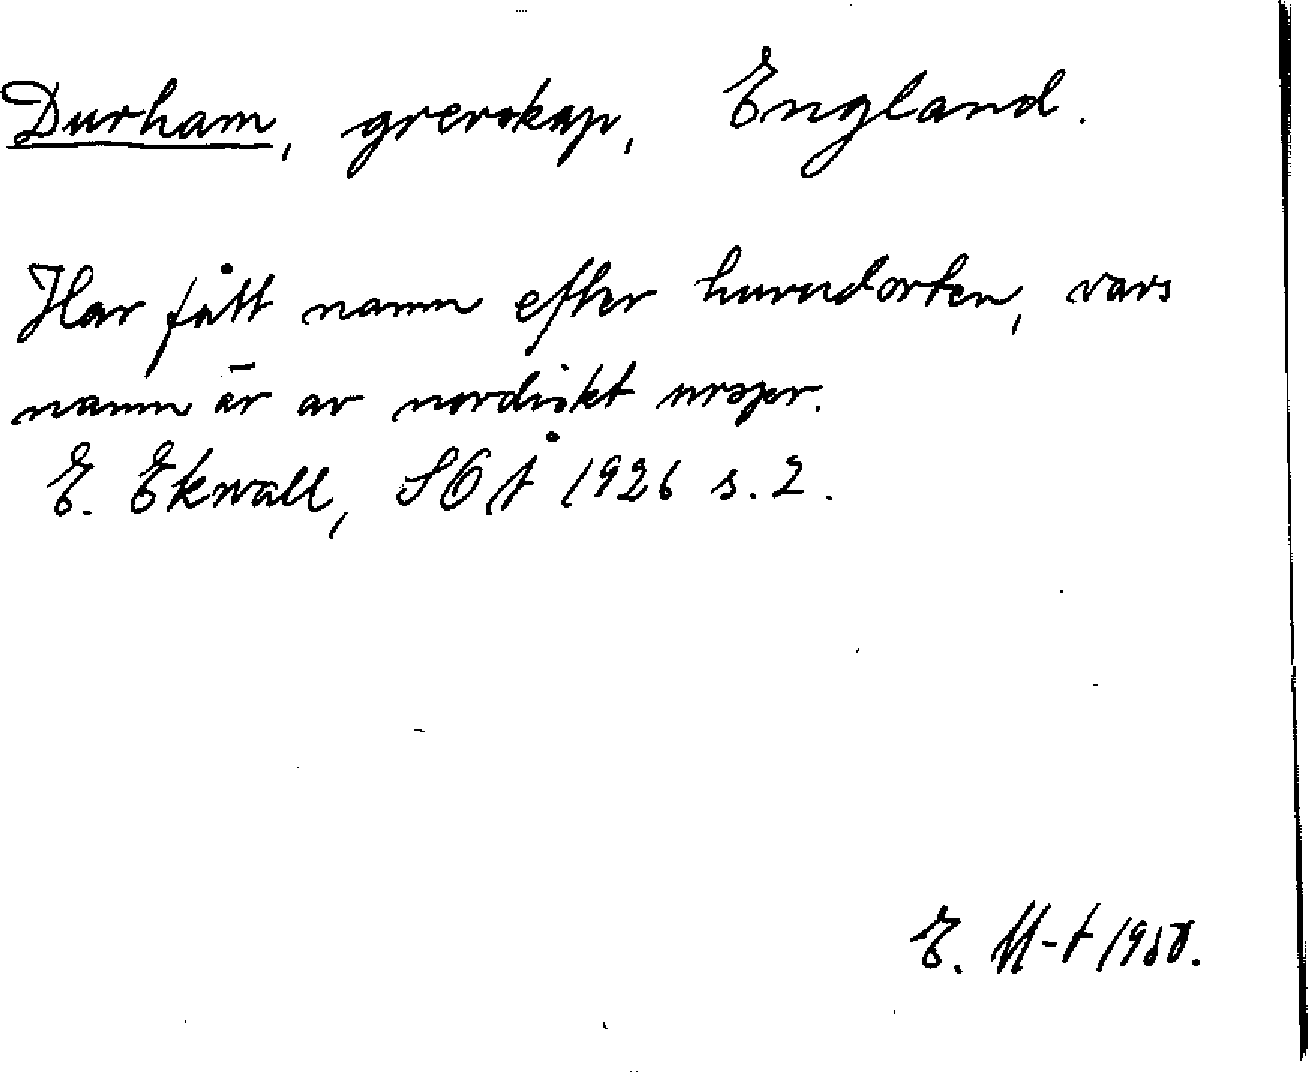 Durham, grevskap, England.
Har fått namn efter huvudorten, vars
namn är av nordiskt urspr.
E. Ekwall, SOÅ 1926 s. 2.
E. M-t 1950.